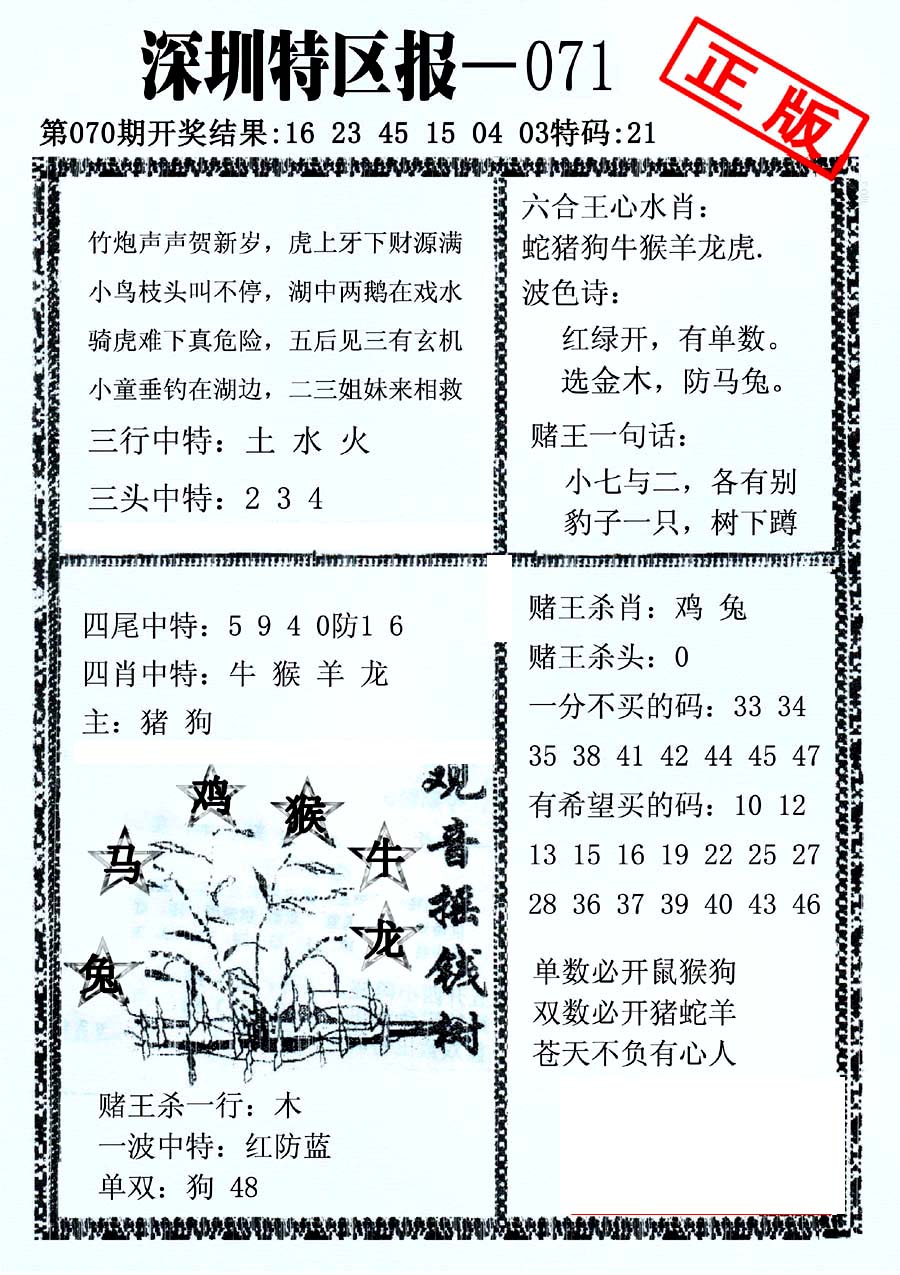 深圳特区报—071
正版
第070期开奖结果:16 23 45 15 04 03特码:21
竹炮声声贺新岁，虎上牙下财源满
小鸟枝头叫不停，湖中两鹅在戏水
骑虎难下真危险，五后见三有玄机
小童垂钓在湖边，二三姐妹来相救
三行中特：土 水 火
三头中特：2 3 4
六合王心水肖：
蛇猪狗牛猴羊龙虎.
波色诗：
红绿开，有单数。
选金木，防马兔。
赌王一句话：
小七与二，各有别
豹子一只，树下蹲
四尾中特：5 9 4 0防1 6
四肖中特：牛 猴 羊 龙
主：猪 狗
鸡
猴
马
牛
龙
兔
观音摇钱树
赌王杀一行：木
一波中特：红防蓝
单双：狗 48
赌王杀肖：鸡 兔
赌王杀头：0
一分不买的码：33 34
35 38 41 42 44 45 47
有希望买的码：10 12
13 15 16 19 22 25 27
28 36 37 39 40 43 46
单数必开鼠猴狗
双数必开猪蛇羊
苍天不负有心人